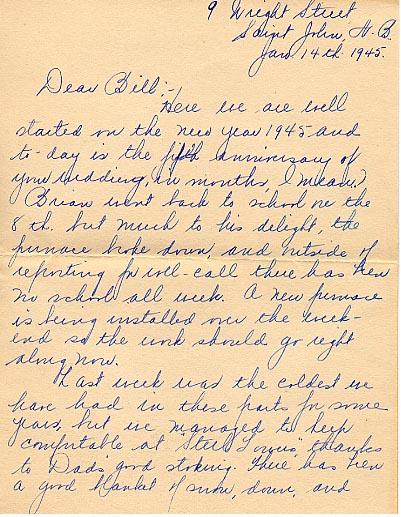 9 Wright Street
Saint John, N.B.
Jan 14th 1945.
Dear Bill:-
Here we are well
started on the new year 1945 and
to-day is the fifth anniversary of
your wedding, (in months, I mean.)
Brian went back to school on the
8th. but much to his delight, the
furnace broke down, and outside of
reporting for roll-call there has been
no school all week. A new furnace
is being installed over the week-
end so the work should go right
along now.
Last week was the coldest we
have had in these parts for some
years, but we managed to keep
comfortable at thanks
to Dad's good stoking. There has been
a good blanket of snow, down, and